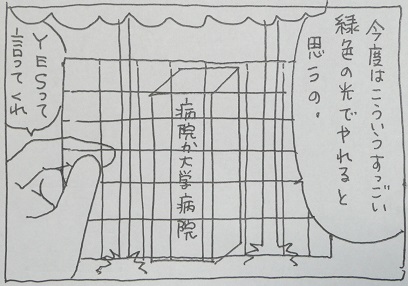 今度はこういうすっごい
緑色の光でやれると
思うの。
病院か大学病院
YESって
言ってくれ